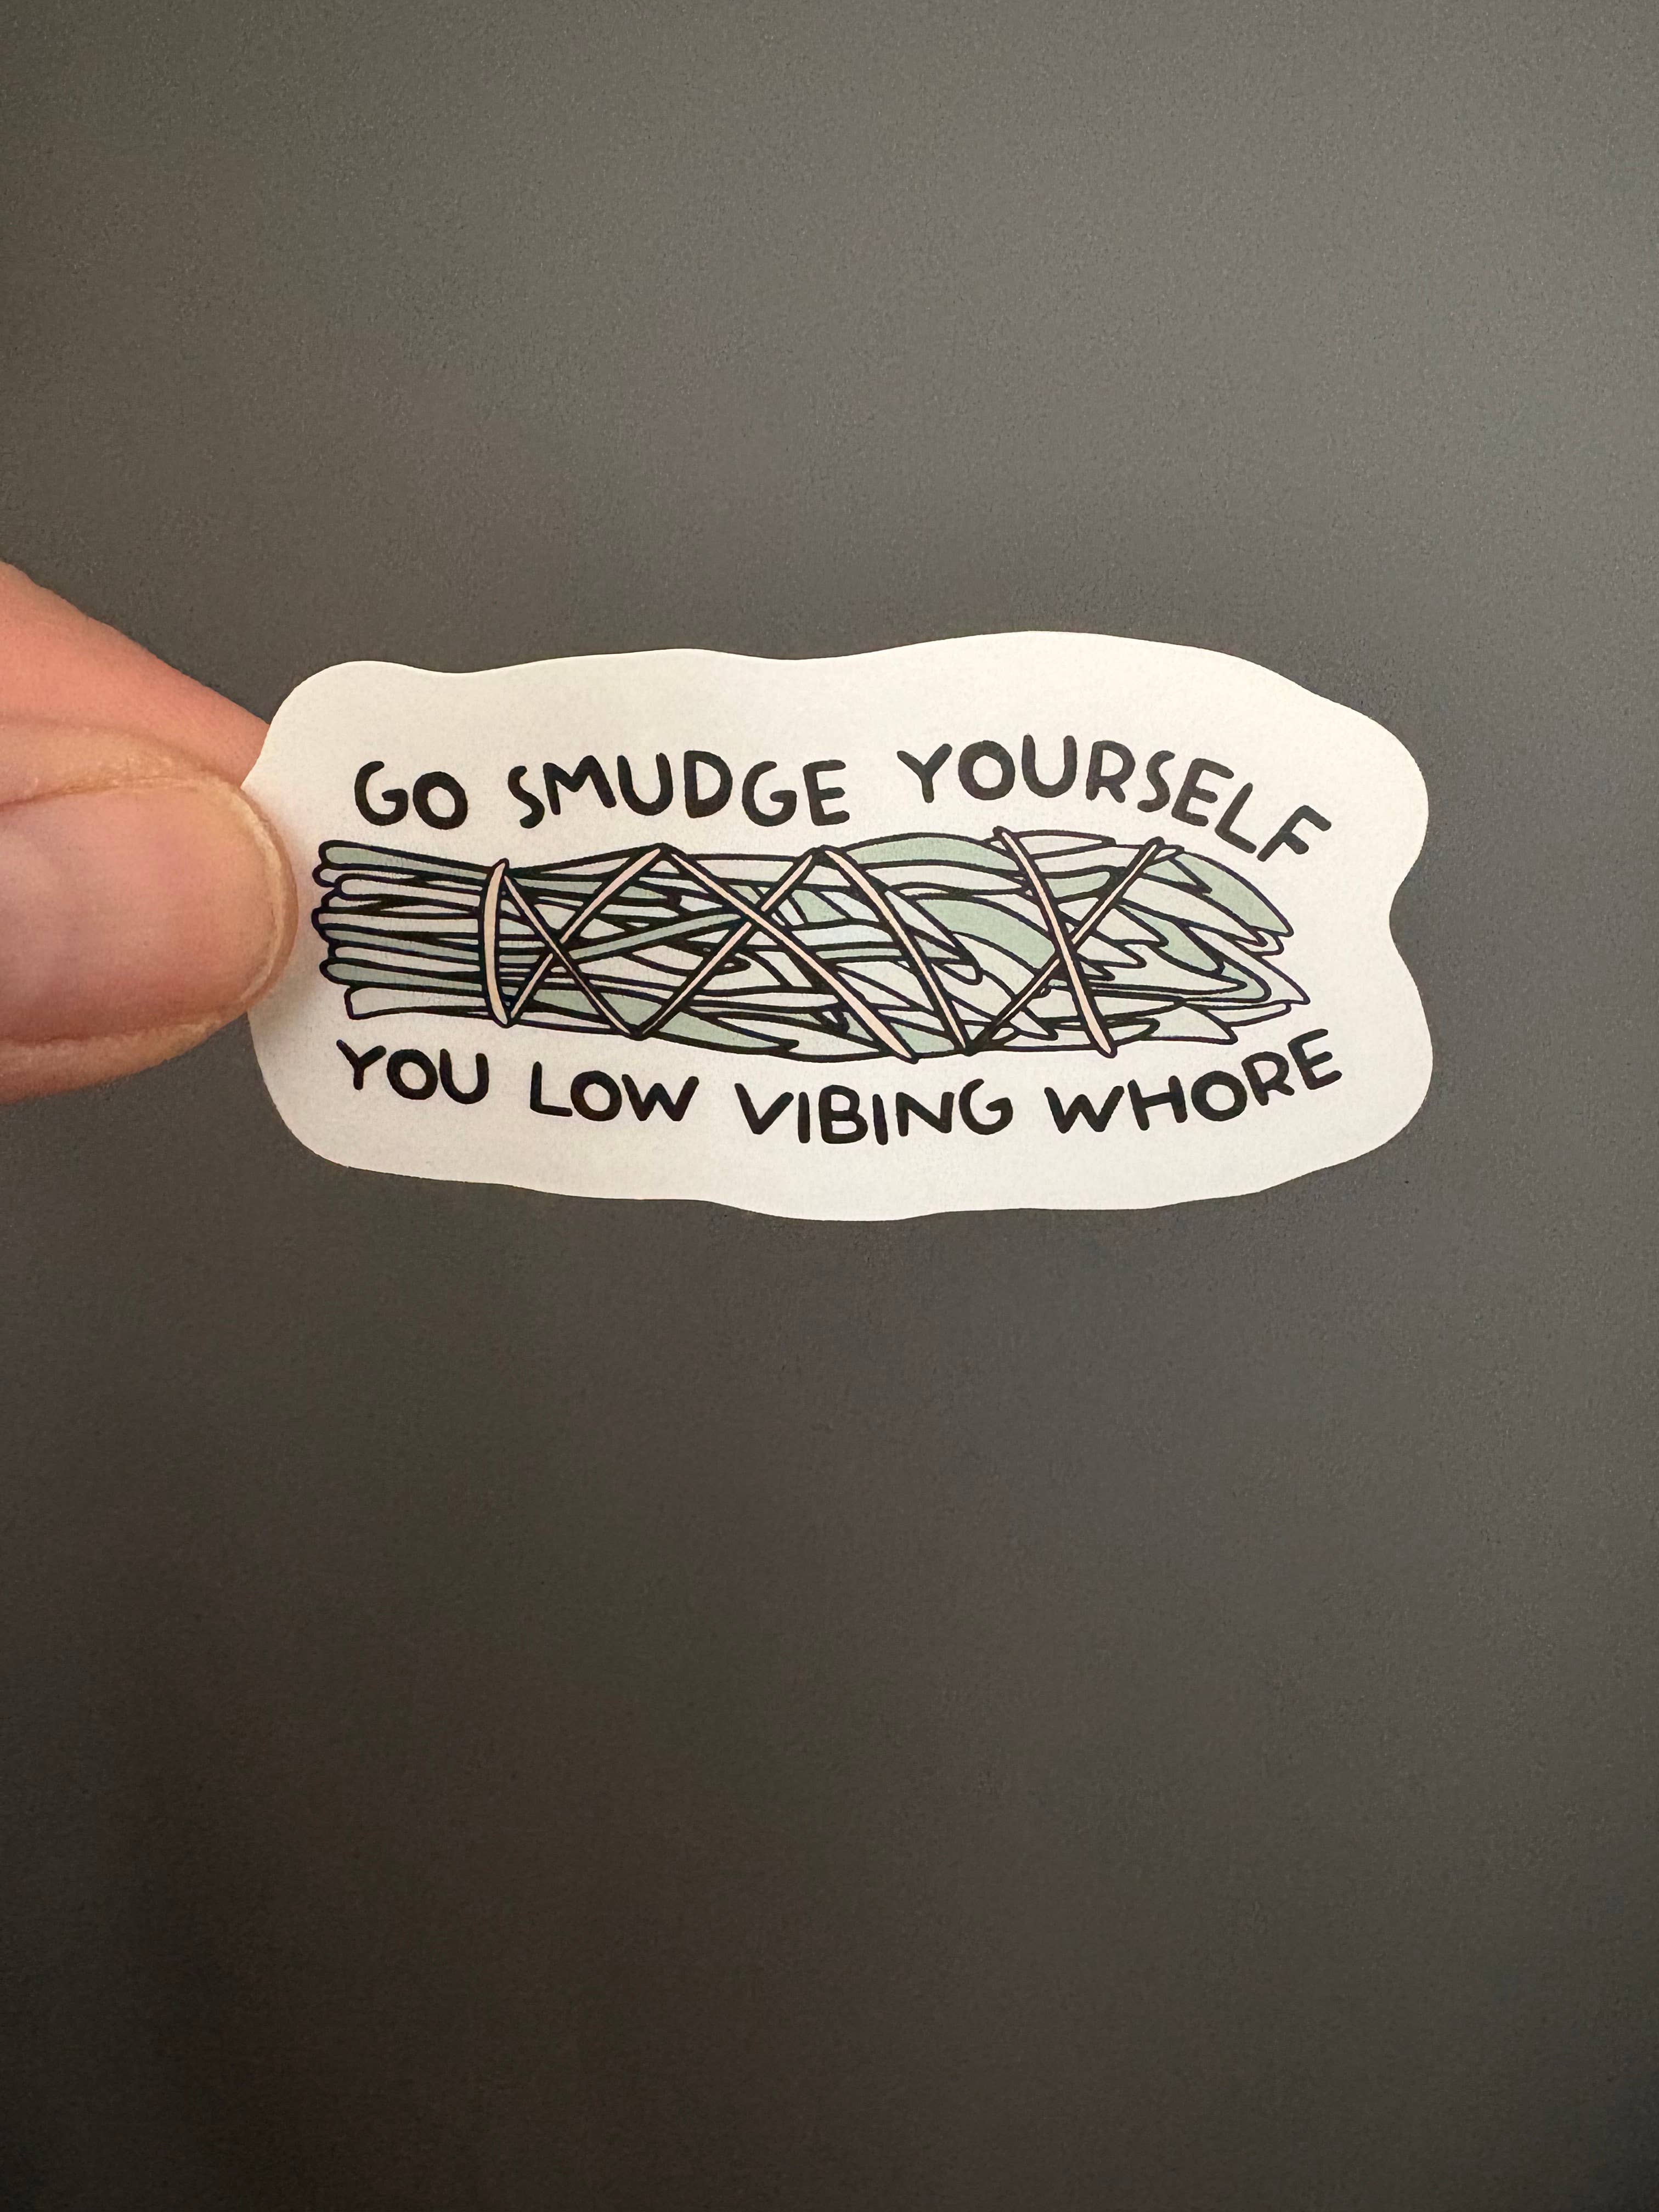 GO SMUDGE YOURSELF
YOU LOW VIBING WHORE